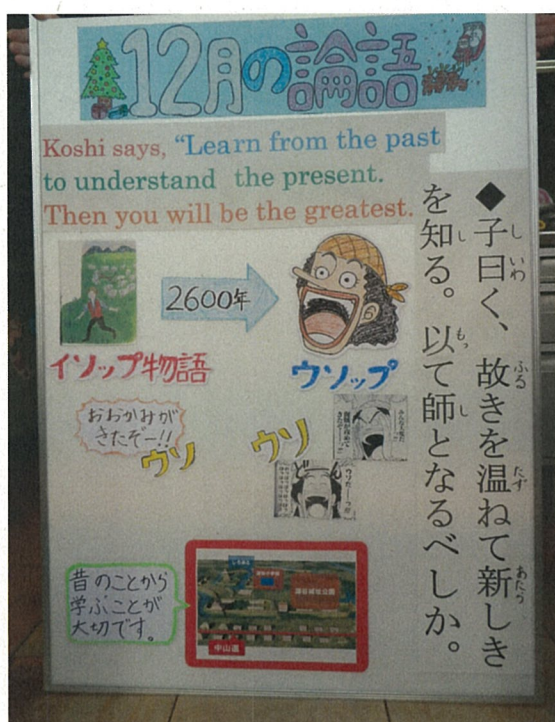 12月の論語
Koshi says, “Learn from the past
to understand the present.
Then you will be the greatest.
◆子曰く、故きを温ねて新しき
を知る。以て師となるべしか。
2600年
イソップ物語
ウソップ
おおかみが
きたぞー!!
ウソ
ウソ
昔のことから
学ぶことが
大切です。
中山道